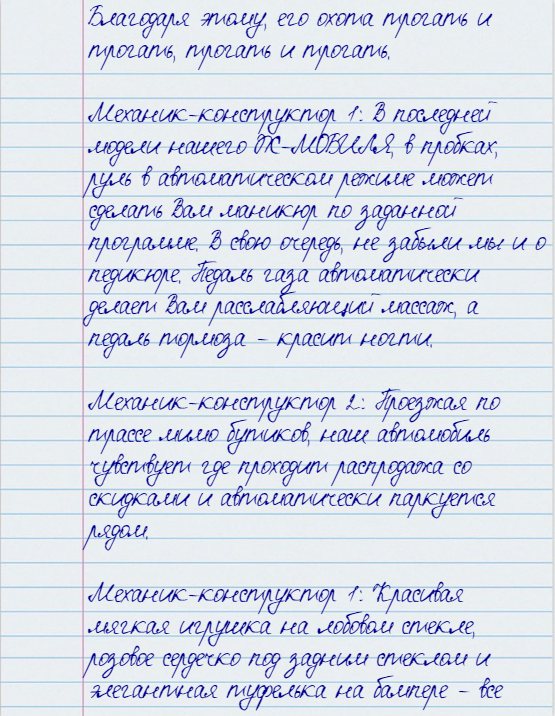 Благодаря этому, его охота трогать и
трогать, трогать и трогать.
Механик-конструктор 1: В последней
модели нашего Ж-МОБИЛЯ, в пробках,
руль в автоматическом режиме может
сделать Вам маникюр по заданной
программе. В свою очередь, не забыли мы и о
педикюре. Педаль газа автоматически
делает Вам расслабляющий массаж, а
педаль тормоза – красит ногти.
Механик-конструктор 2: Проезжая по
трассе мимо бутиков, наш автомобиль
чувствует где проходит распродажа со
скидками и автоматически паркуется
рядом.
Механик-конструктор 1: Красивая
мягкая игрушка на лобовом стекле,
розовое сердечко под задним стеклом и
элегантная туфелька на бампере – все